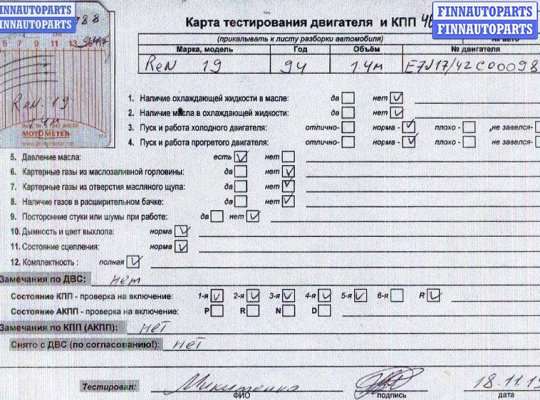 FINNAUTOPARTS
FINNAUTOPARTS
FINNAUTOPARTS
FINNAUTOPARTS
Карта тестирования двигателя и КПП
(прикалывать к листу разборки автомобиля)
Марка, модель Год Объём № двигателя
ReN 19 94 1.4м E7J17/42C00098
5 7 9 11 13
ReN. 19
1.4м
MOTOMETER
1. Наличие охлаждающей жидкости в масле: да нет
2. Наличие масла в охлаждающей жидкости: да нет
3. Пуск и работа холодного двигателя: отлично- норма - плохо - не завелся-
4. Пуск и работа прогретого двигателя: отлично- норма - плохо - не завелся-
5. Давление масла: есть нет
6. Картерные газы из маслозаливной горловины: да нет
7. Картерные газы из отверстия масляного щупа: да нет
8. Наличие газов в расширительном бачке: да нет
9. Посторонние стуки или шумы при работе: да нет
10. Дымность и цвет выхлопа: норма
11. Состояние сцепления: норма
12. Комплектность : полная
Замечания по ДВС: нет
Состояние КПП - проверка на включение: 1-я 2-я 3-я 4-я 5-я 6-я R
Состояние АКПП - проверка на включение: P R N D
Замечания по КПП (АКПП): нет
Снято с ДВС (по согласованию!): нет
Тестировал: Микитенко 18.11.1
ФИО подпись дата